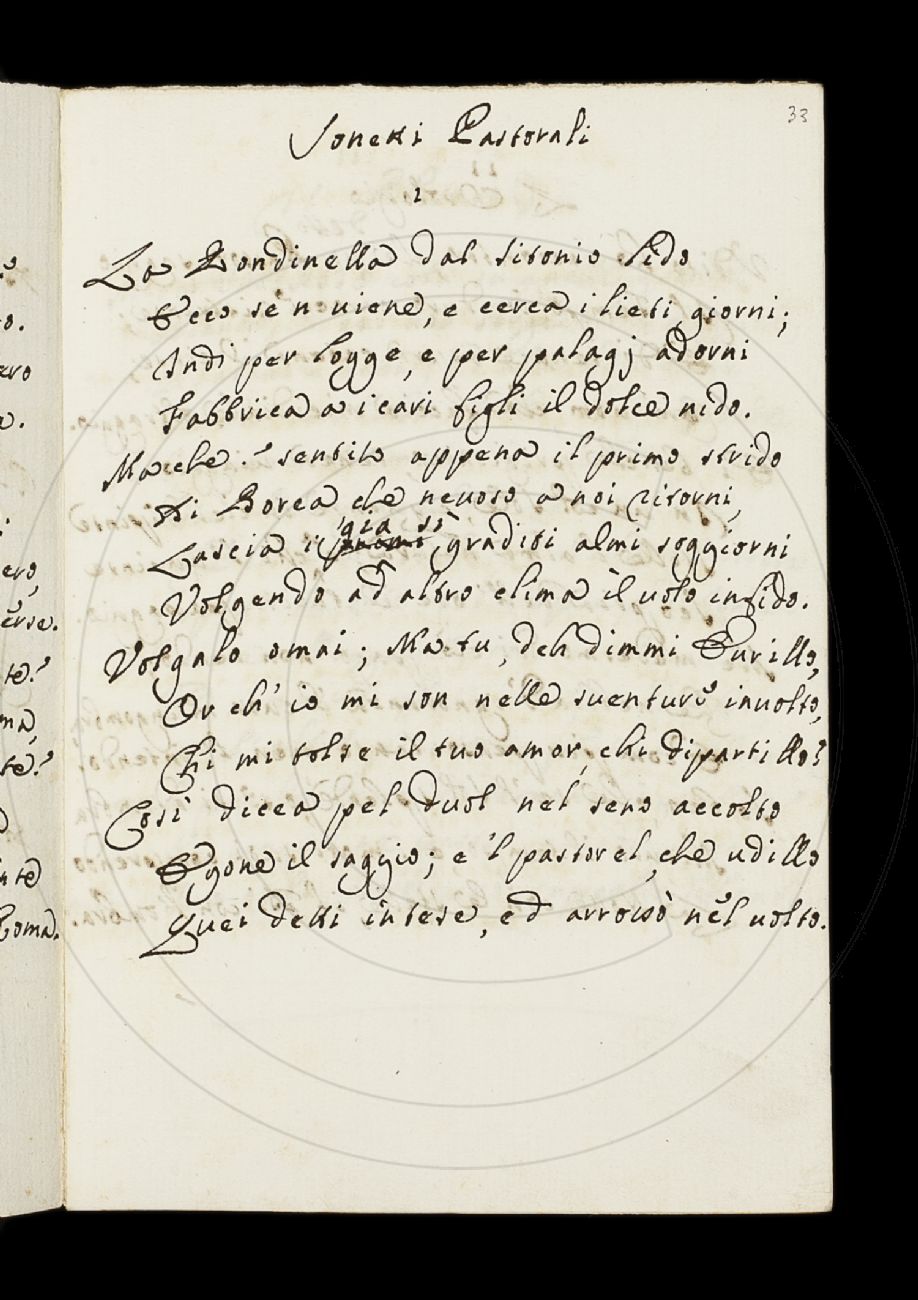 33
Sonetti Pastorali
1
La Rondinella dal Sitonio lido
Ecco se n viene, e cerca i lieti giorni;
Indi per logge, e per palagj adorni
Fabbrica a i cari figli il dolce nido.
Ma che? sentito appena il primo strido
Di Borea che nevoso a noi ritorni,
già sì
Lascia i graditi almi soggiorni
Volgendo ad altro clima il volo infido.
Volgalo omai; Ma tu, deh dimmi Eurillo,
Or ch' io mi son nelle sventure involto,
Chi mi tolse il tuo amor, chi dipartillo?
Così dicea pel duol nel seno accolto
Egone il saggio; e 'l pastorel, che udillo
Quei detti intese, ed arrossò nel volto.